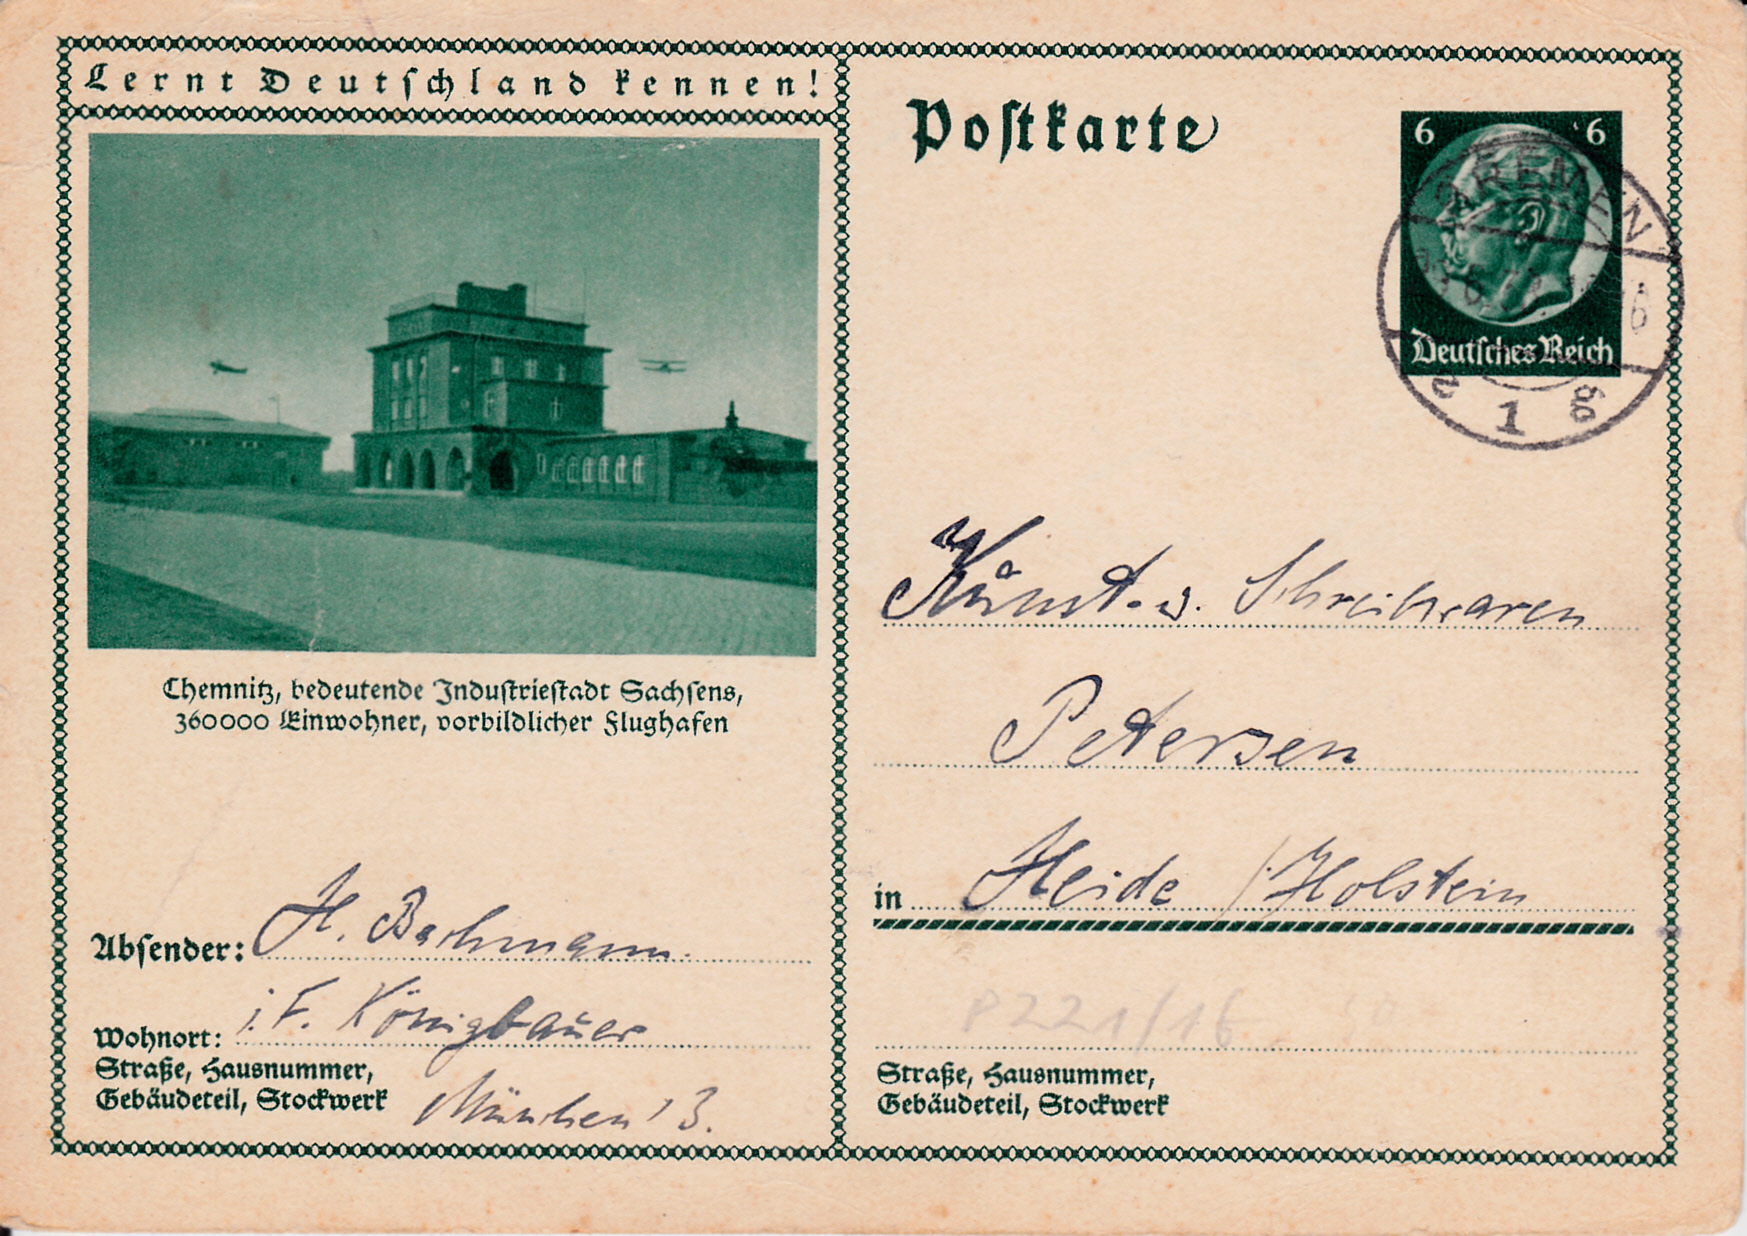 Lernt Deutschland kennen!
Chemnitz, bedeutende Industriestadt Sachsens,
360000 Einwohner, vorbildlicher Flughafen
Absender: H. Bachmann.
Wohnort: i. F. Königbauer
Straße, Hausnummer,
Gebäudeteil, Stockwerk
München 13.
Postkarte
6 6
Deutsches Reich
BREMEN
1
Kunst- u. Schreibwaren
Petersen
in Heide / Holstein
P221/16
Straße, Hausnummer,
Gebäudeteil, Stockwerk